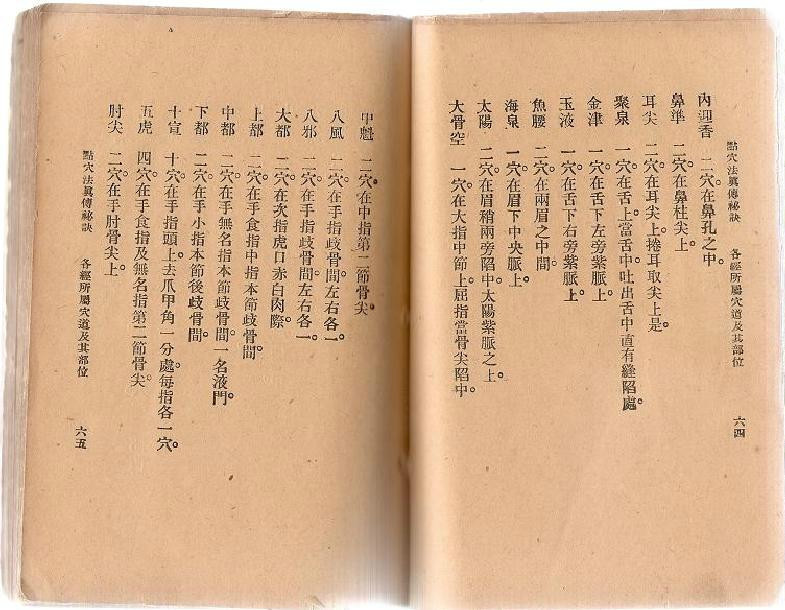 點穴法眞傳祕訣 各經所屬穴道及其部位 六四
內迎香 二穴。在鼻孔之中。
鼻準 二穴。在鼻柱尖上。
耳尖 二穴。在耳尖上。捲耳取尖上是。
聚泉 一穴。在舌上。當舌中。吐出舌中直有縫陷處。
金津 一穴。在舌下左旁紫脈上。
玉液 一穴。在舌下右旁紫脈上。
魚腰 二穴。在兩眉之中間。
海泉 一穴。在眉下中央脈上。
太陽 二穴。在眉稍兩旁陷中。太陽紫脈之上。
大骨空 一穴。在大指中節上。屈指當骨尖陷中。
中魁 二穴。在中指第二節骨尖。
八風 二穴。在手指歧骨間左右各一。
八邪 二穴。在手指歧骨間左右各一。
大都 二穴。在次指虎口赤白肉際。
上都 二穴。在手食指中指本節歧骨間。
中都 二穴。在手無名指本節歧骨間。一名液門。
下都 二穴。在手小指本節後歧骨間。
十宣 十穴。在手指頭上。去爪甲角一分處。每指各一穴。
五虎 四穴。在手食指及無名指第二節骨尖。
肘尖 二穴。在手肘骨尖上。
點穴法眞傳祕訣 各經所屬穴道及其部位 六五